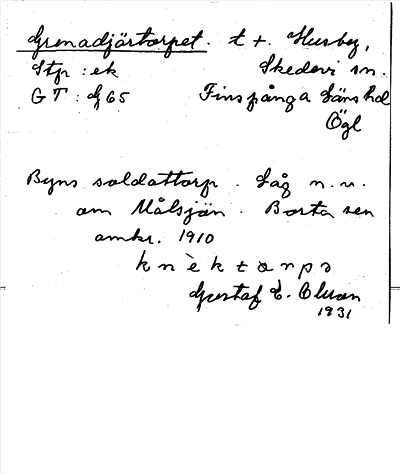 Grenadjärtorpet. t +. Husby,
Stp : ek Skedevi sn.
G T : dj 65 Finspånga läns hd
Ögl
Byns soldattorp. Låg n.v.
om Målsjön. Borta sen
omkr. 1910
knèktorpə
Gustaf E. Olsson
1931